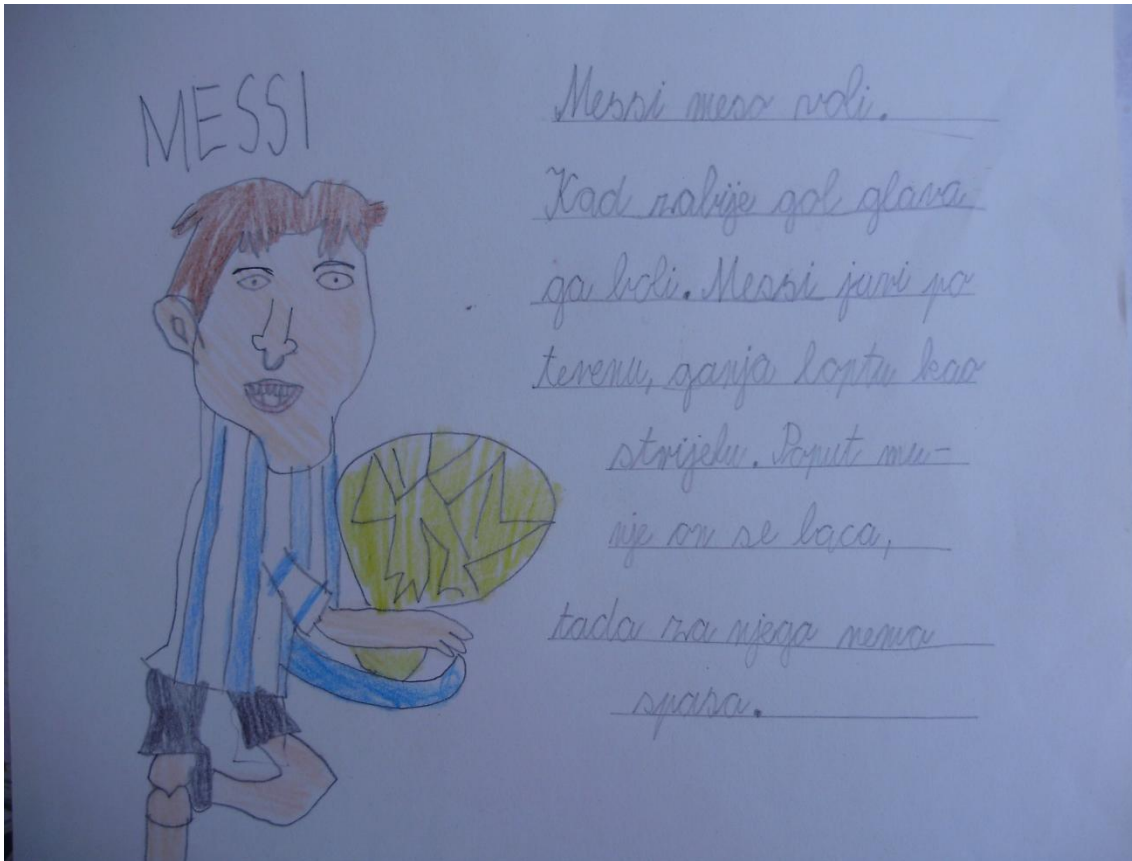 MESSI
Messi meso voli.
Kad zabije gol glava
ga boli. Messi javi po
terenu, ganja loptu kao
strijelu. Poput mu-
nje on se baca,
tada za njega nema
spasa.